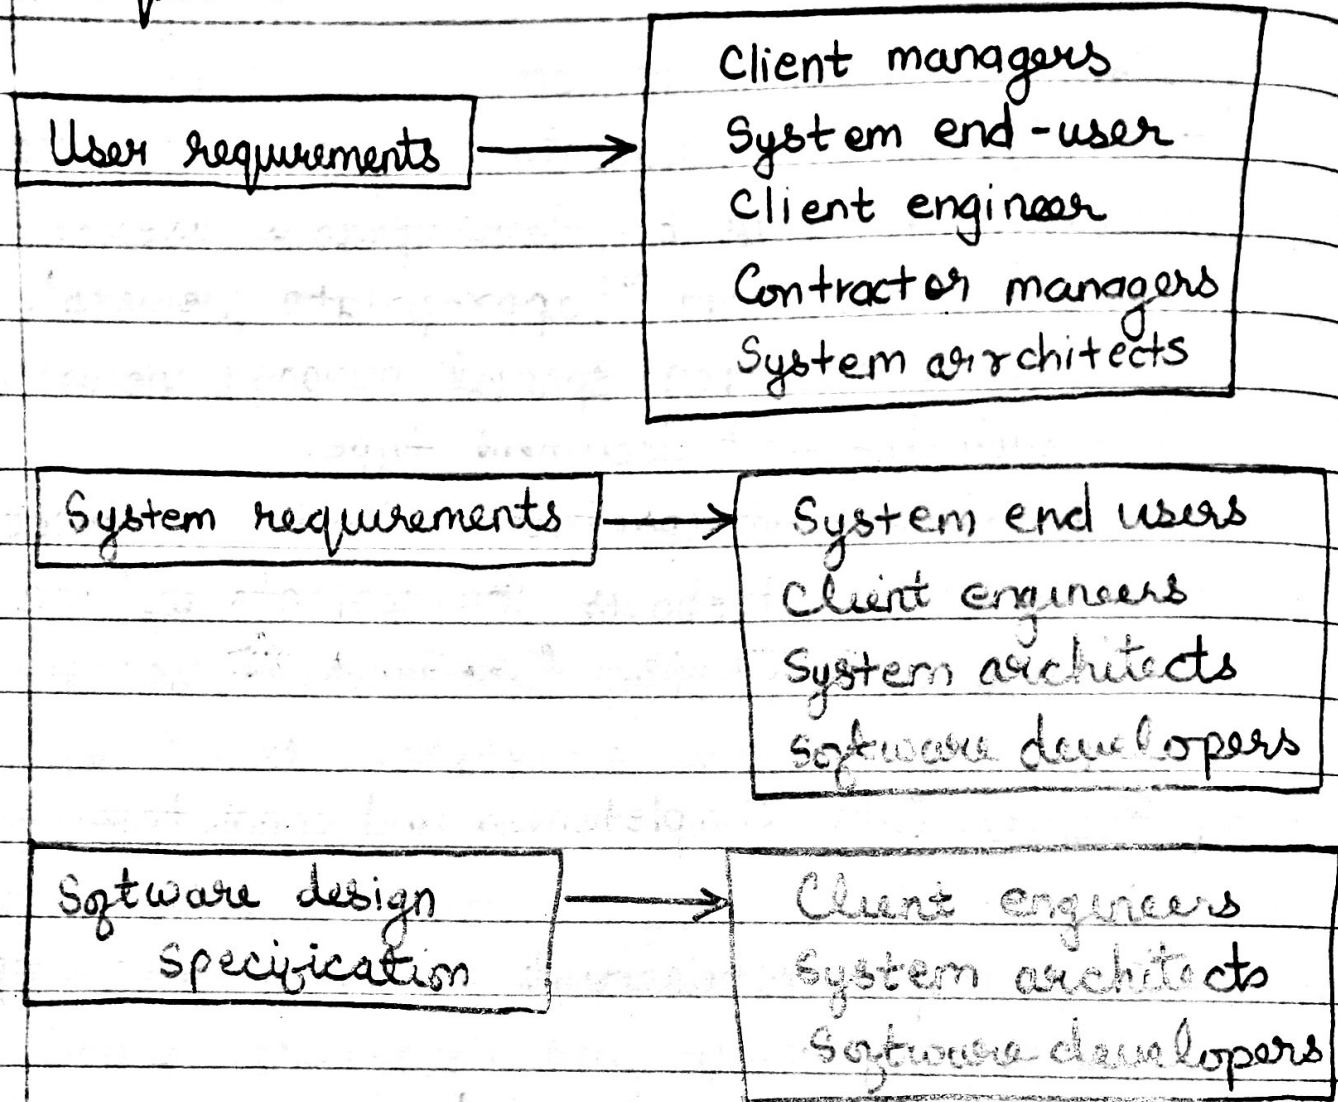 User requirements
Client managers
System end-user
Client engineer
Contractor managers
System arrchitects
System requirements
System end users
Client engineers
System architects
Software developers
Software design
specification
Client engineers
System architects
Software developers